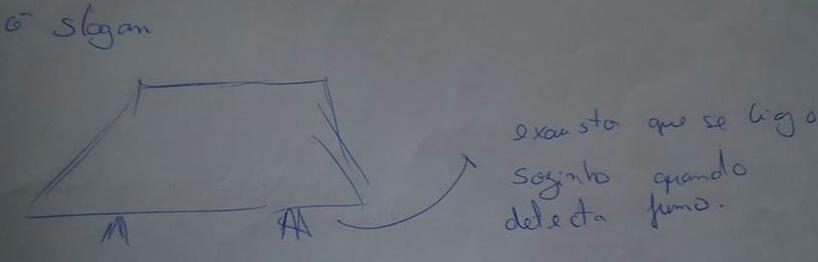 slogan
exaustor que se liga
sozinho quando
detecta fumo.